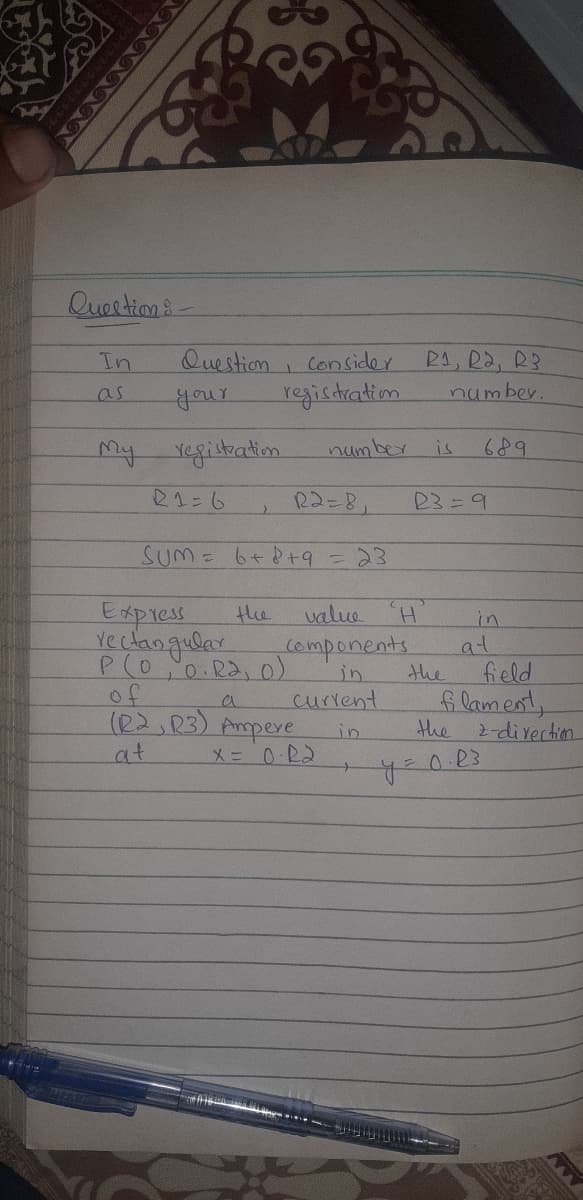 Question:-
In Question, consider R1, R2, R3
as your registration number.
My registration number is 689
R1=6, R2=8, R3=9
SUM = 6+8+9 = 23
Express the value 'H' in
rectangular components at
P(0, 0.R2, 0) in the field
of a current filament,
(R2, R3) Ampere in the z-direction
at x = 0.R2, y = 0.R3